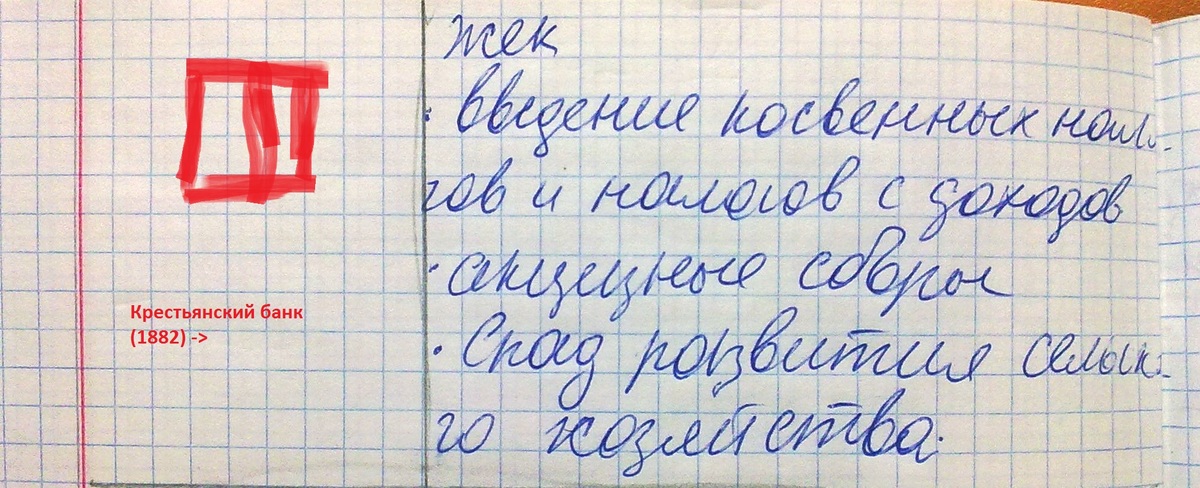 жек
Крестьянский банк
(1882) ->
· введение косвенных нало-
гов и налогов с доходов
· акцизные сборы
· Спад развития сельск.
го хозяйства.